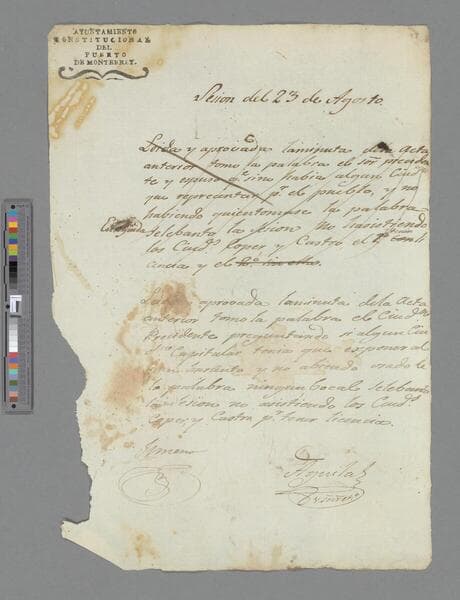 AYUNTAMIENTO
CONSTITUCIONAL
DEL
PUERTO
DE MONTERREY.
Sesion del 23 de Agosto.
Leida y aprovada laminuta dela Acta
anterior tomo la palabra el Sor preciden
te y espuso qe. sino habia algun Ciudo.
que reprecentar pr. el pueblo, y no
habiendo quientomase la palabra
selebanto la sesion no haasistiendo
los Ciuds. Lopez y Castro el pr.
cencia y el
Leida y aprovada laminuta dela Acta
anterior tomo la palabra el Ciudno.
Presidente preguntando si algun Ciu
Capitular tenia que esponer al
y no abiendo usado de
la palabra ningun bocal selebanto
lasesion no asistiendo los Ciuds.
Lopez, y Castro pr. tener licencia.
Ximeno